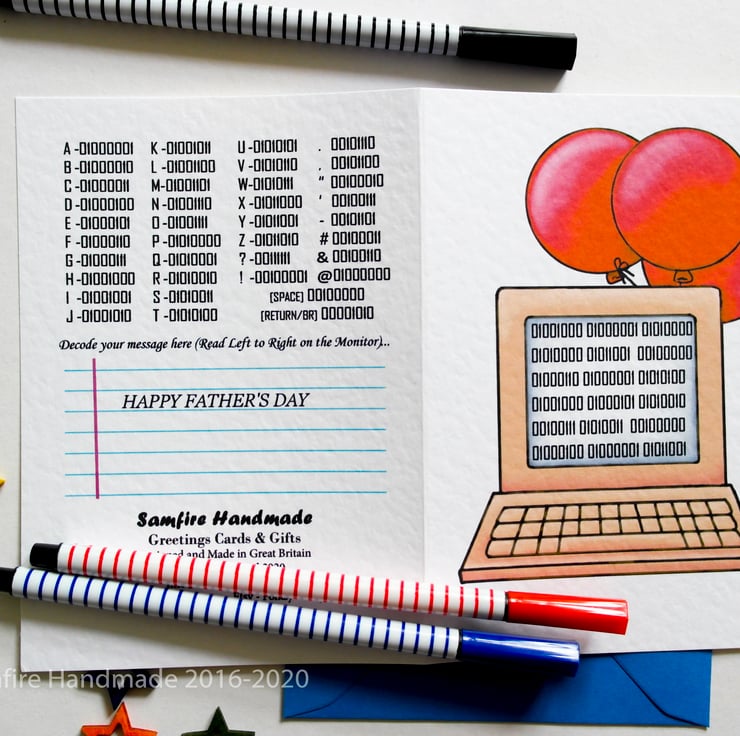 A -01000001 K -01001011 U -01010101 . 00101110
B -01000010 L -01001100 V -01010110 , 00101100
C -01000011 M-01001101 W-01010111 " 00100010
D -01000100 N -01001110 X -01011000 ' 00100111
E -01000101 O -01001111 Y -01011001 - 00101101
F -01000110 P -01010000 Z -01011010 # 00100011
G -01000111 Q -01010001 ? -00111111 & 00100110
H -01001000 R -01010010 ! -00100001 @01000000
I -01001001 S -01010011 [SPACE] 00100000
J -01001010 T -01010100 [RETURN/BR] 00001010
Decode your message here (Read Left to Right on the Monitor)...
HAPPY FATHER'S DAY
Samfire Handmade
Greetings Cards & Gifts
and Made in Great Britain
01001000 01000001 01010000
01010000 01011001 00100000
01000110 01000001 01010100
01001000 01000101 01010010
00100111 01010011 00100000
01000100 01000001 01011001
Handmade 2016-2020